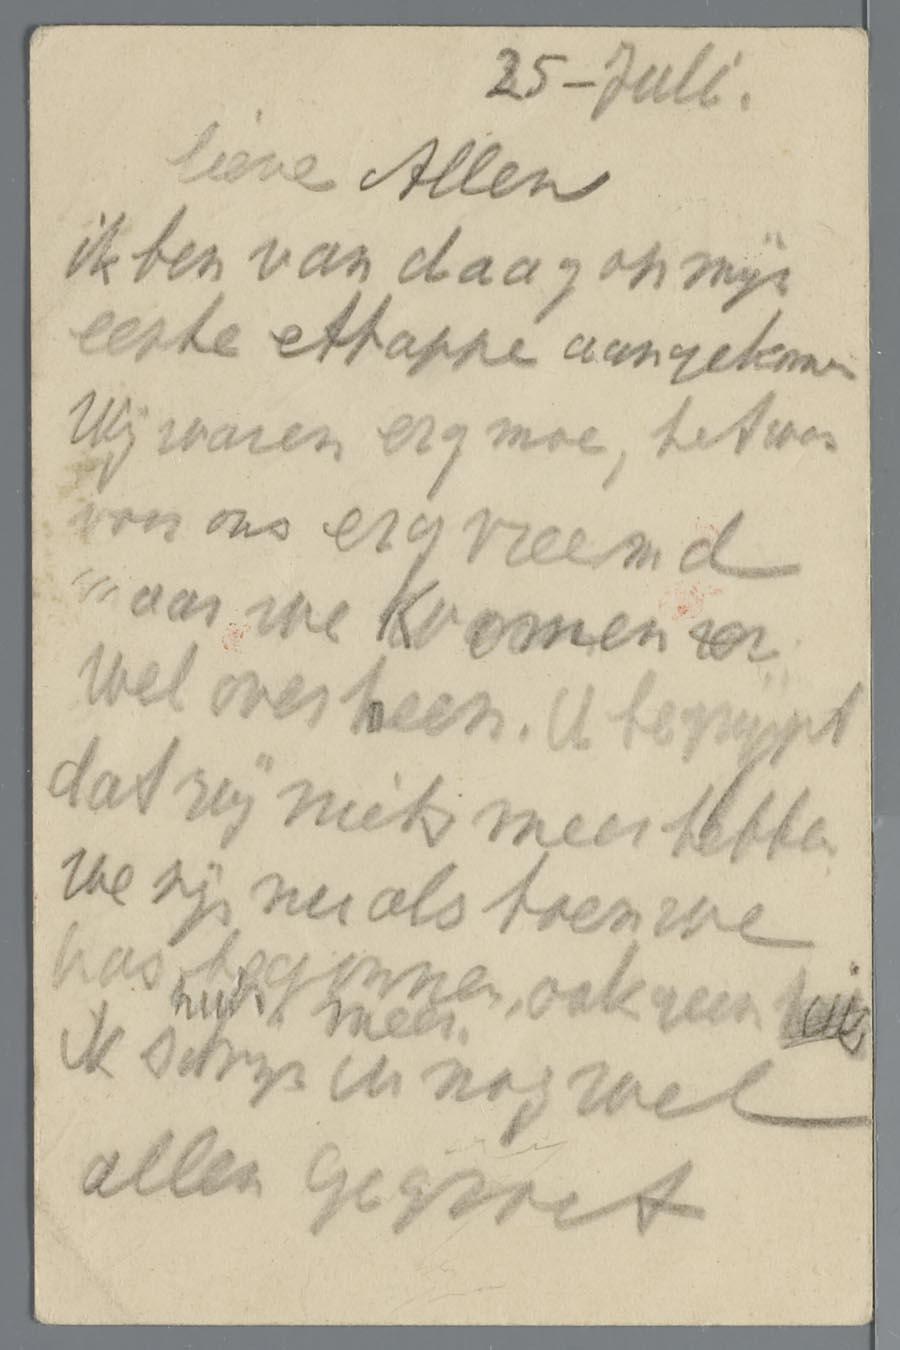 25-Juli.
lieve Allen
ik ben van daag op mijn
eerste ettappe aangekomen
Wij waren erg moe, het was
voor ons erg vreemd
maar we Koomen er
wel over heen. U begrijpt
dat wij niets meer hebben
we zijn nu als toen we
pas begonnen, ook geen
huis meer.
ik schrijf U nog wel
allen gegroet